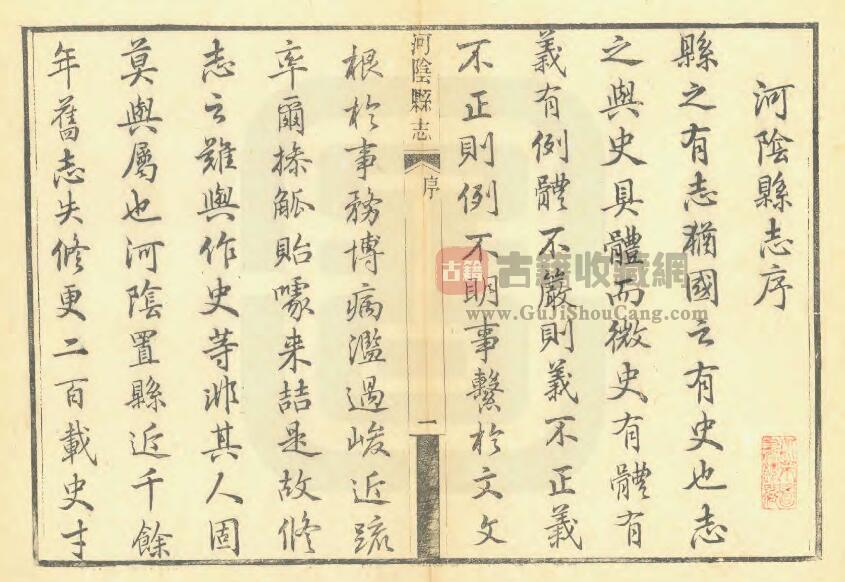 河陰縣志序
縣之有志猶國之有史也志
之與史具體而微史有體有
義有例體不嚴則義不正義
不正則例不明事繫於文文
河陰縣志
序
一
根於事務博病濫過峻近疏
率爾操觚貽噱来詰是故修
志之難與作史等非其人固
莫與屬也河陰置縣近千餘
年舊志失修更二百載史才
古籍
古籍收藏網
www.GuJiShouCang.com